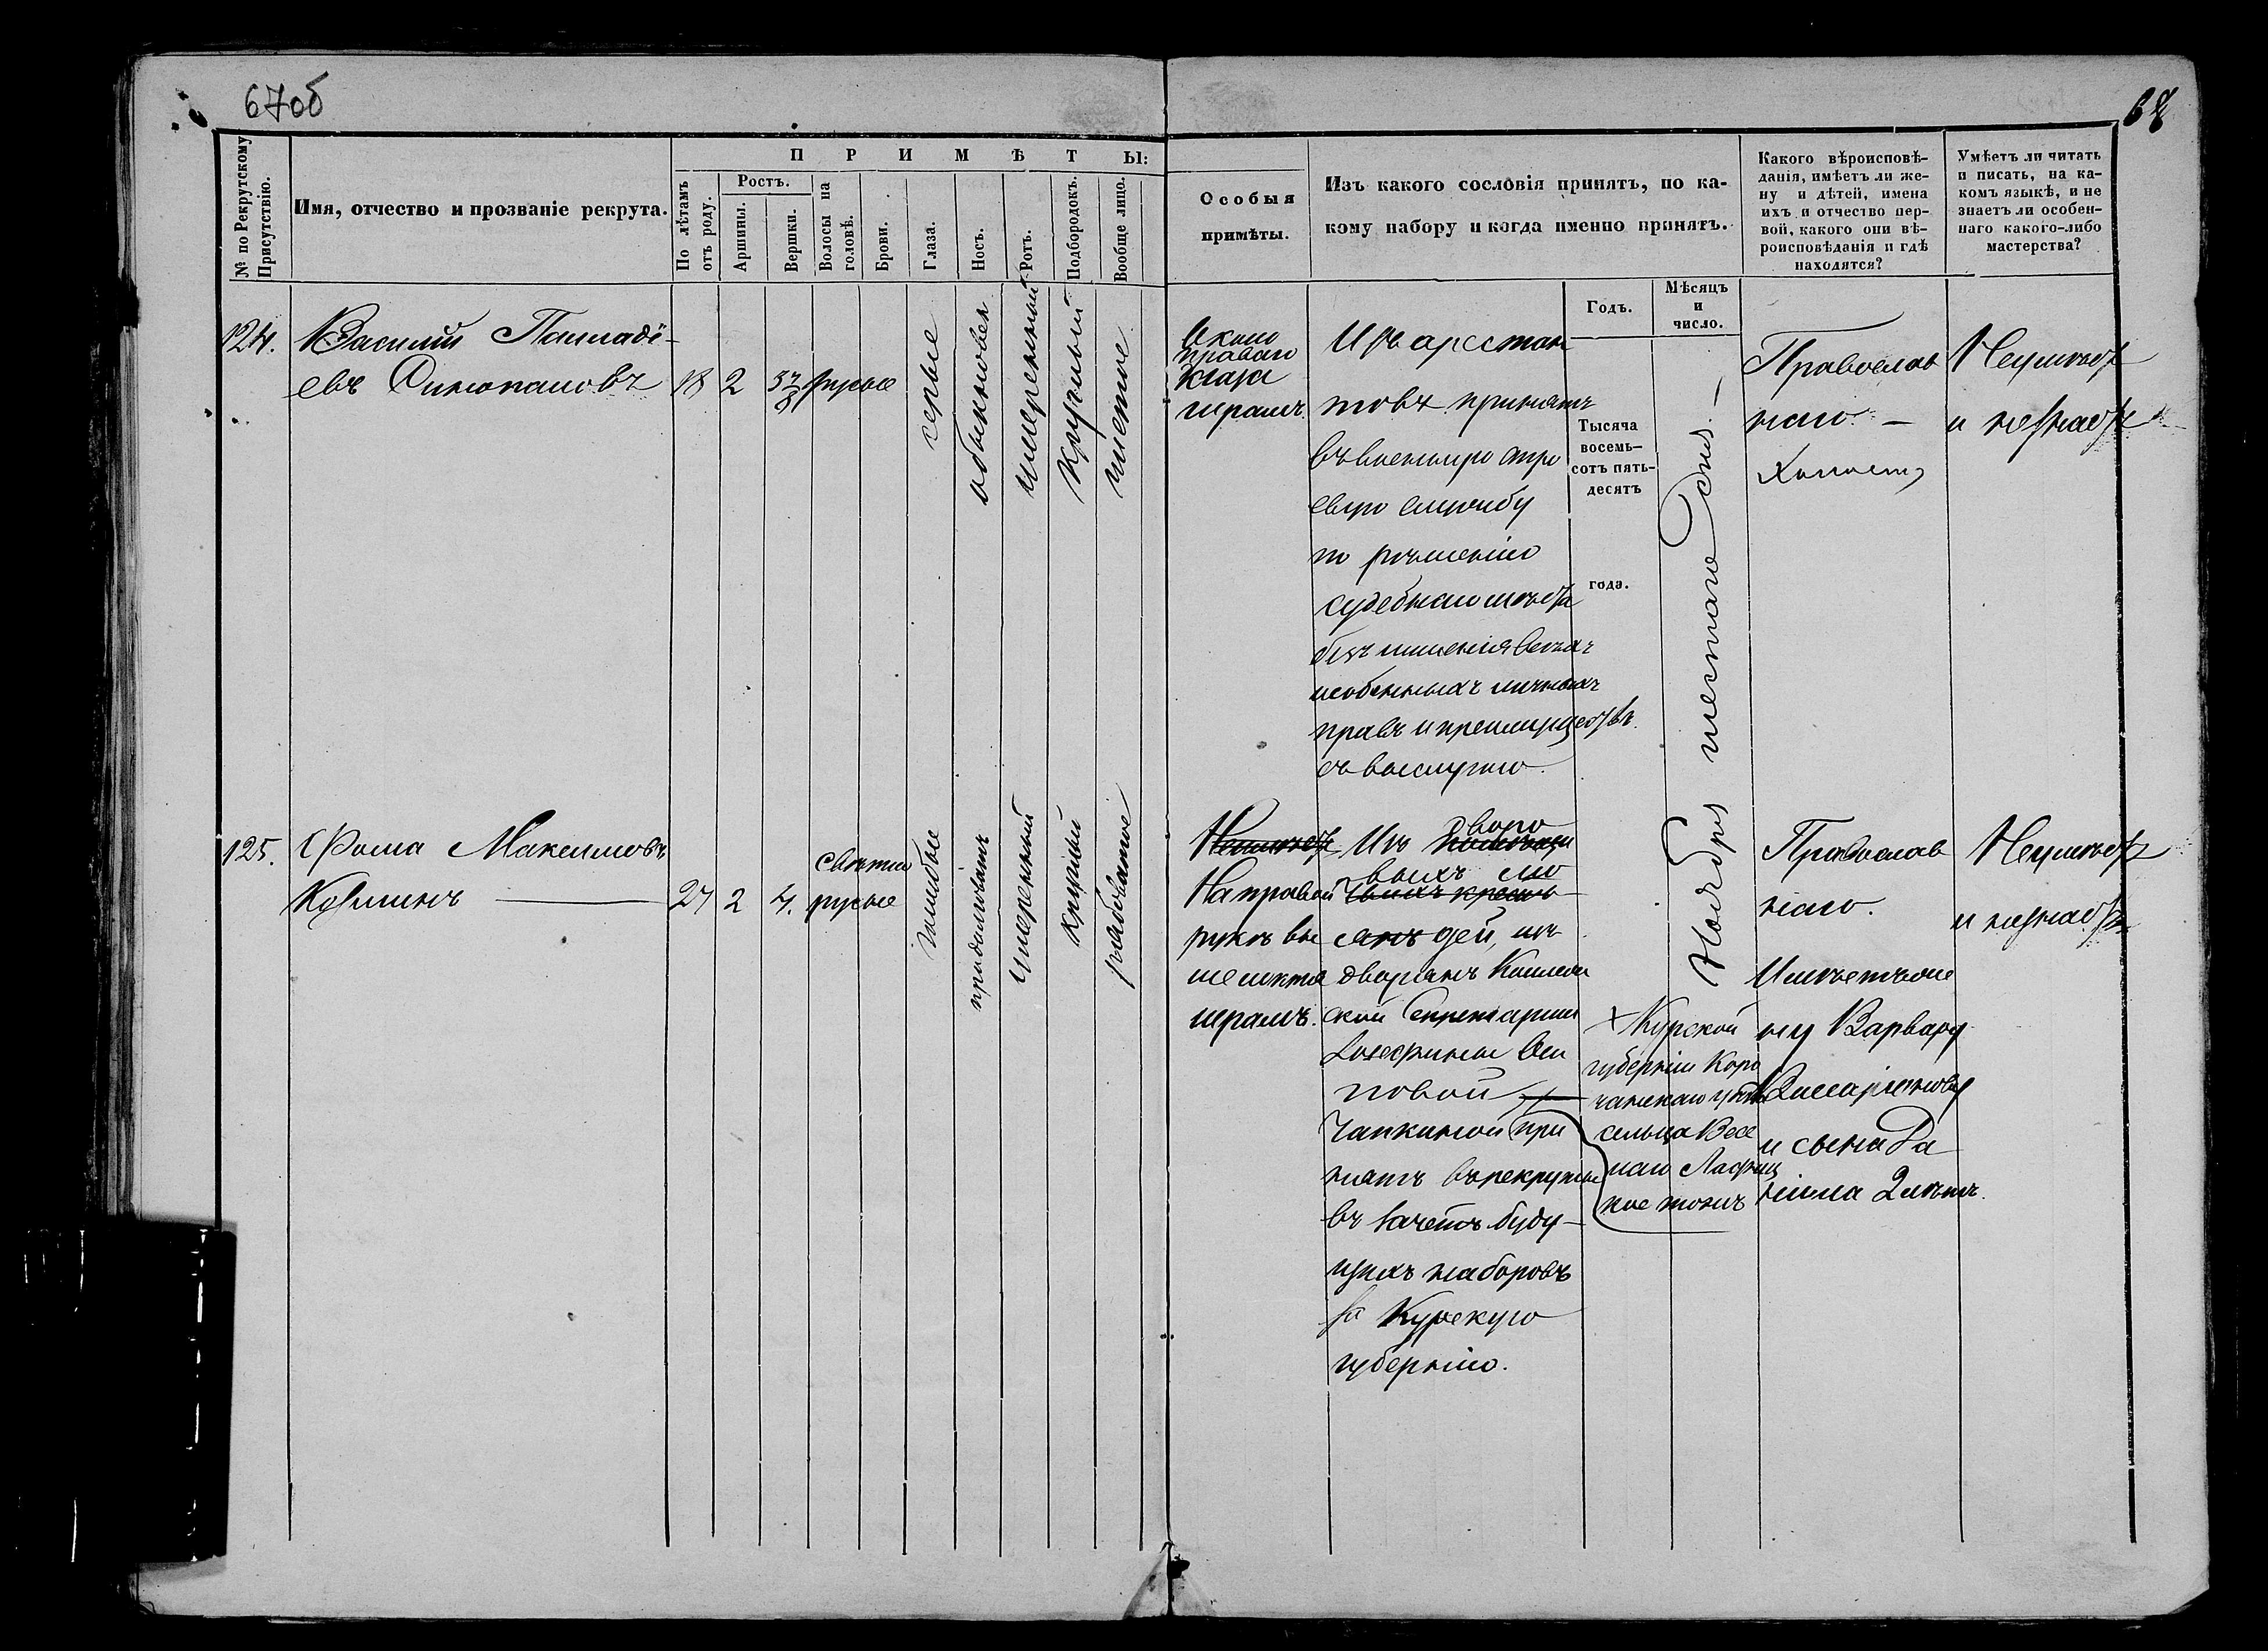 67об
68
№ по Рекрутскому Присутствію.
Имя, отчество и прозваніе рекрута.
ПРИМѢТЫ:
По лѣтамъ отъ роду.
Ростъ.
Аршины.
Вершки.
Волосы на головѣ.
Брови.
Глаза.
Носъ.
Ротъ.
Подбородокъ.
Вообще лицо.
Особыя
примѣты.
Изъ какого сословія принятъ, по ка-
кому набору и когда именно принятъ.
Годъ.
Мѣсяцъ
и
число.
Какого вѣроисповѣ-
данія, имѣетъ ли же-
ну и дѣтей, имена
ихъ и отчество пер-
вой, какого они вѣ-
роисповѣданія и гдѣ
находятся?
Умѣетъ ли читать
и писать, на ка-
комъ языкѣ, и не
знаетъ ли особен-
наго какого-либо
мастерства?
124.
Василий
евъ
18
2
русые
серые
обыкновен
умеренный
круглый
чистое
Около
праваго
глаза
шрамъ.
Изъ арестан
товъ принятъ
въ военную сухо
службу
по рѣшенію
судебнаго мѣста
безъ лишенія всѣхъ
особенныхъ личныхъ
правъ и преимуществъ
съ выслугою.
Тысяча
восемь-
сотъ пять-
десятъ
года.
Ноября шестаго дня. —
Православ
наго. —
Холостъ
Неумѣетъ
и незнаетъ
125.
Фома Максимовъ
Козминъ —
27
2
4.
светло
русые
голубые
продолговатъ
умеренный
круглый
рябоватое
Неимѣетъ
На правой
рукѣ вы
ше локтя
шрамъ.
Изъ дворо
выхъ лю
дей, изъ
дворянъ Коллеж
ской Секретарши
повой
Чапкиной при
нятъ въ рекруты
въ зачетъ буду-
щихъ наборовъ
за Курскую
губернію.
Курской
губерніи Коро
чанскаго уѣзда
сельца Весе
лаго
тожъ
Православ
наго.
Имѣетъ же
ну Варвару
Виссаріонову
и сына Да
ніила 2 лѣтъ.
Неумѣетъ
и незнаетъ